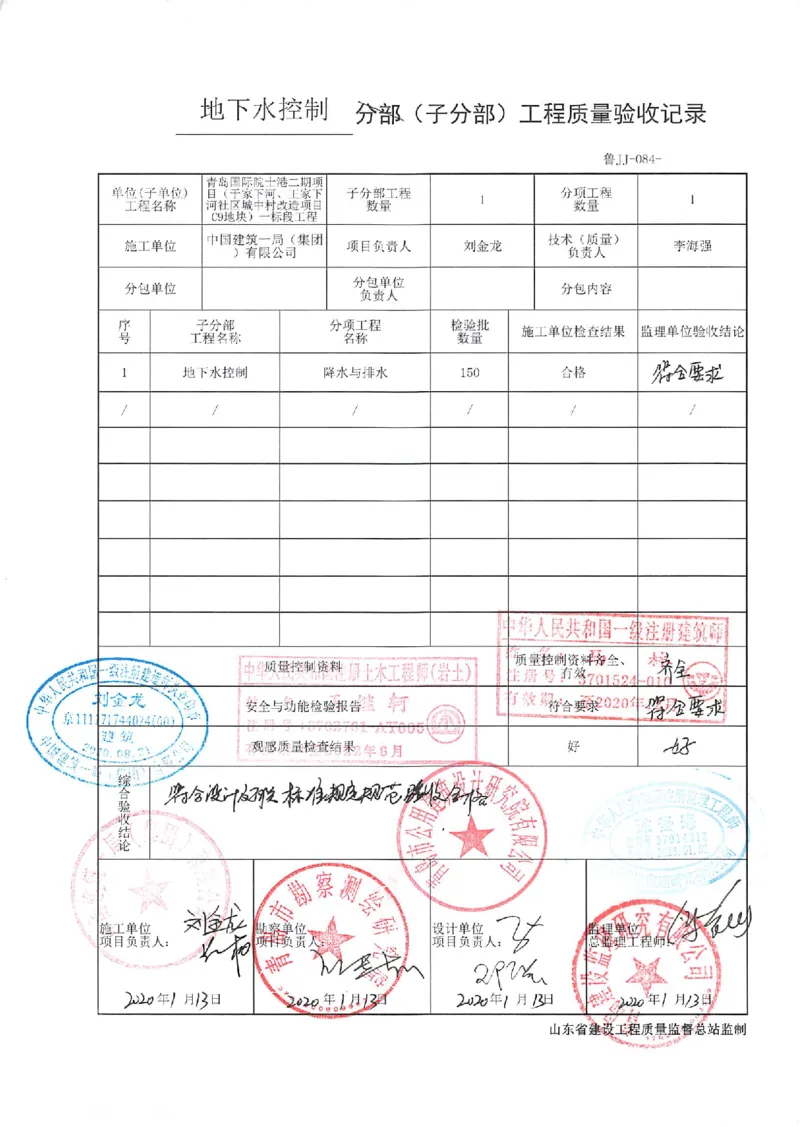 地下水控制 分部（子分部）工程质量验收记录
鲁JJ-084-
单位(子单位)工程名称 青岛国际院士港二期项目（于家下河、王家下河社区城中村改造项目C9地块）一标段工程 子分部工程数量 1 分项工程数量 1
施工单位 中国建筑一局（集团）有限公司 项目负责人 刘金龙 技术（质量）负责人 李海强
分包单位 分包单位负责人 分包内容
序号 子分部工程名称 分项工程名称 检验批数量 施工单位检查结果 监理单位验收结论
1 地下水控制 降水与排水 150 合格 符合要求
/ / / / / /
中华人民共和国一级注册建筑师
质量控制资料 质量控制资料齐全、有效 齐全
安全与功能检验报告 符合要求 符合要求
观感质量检查结果 好 好
刘金龙
建筑
2020.08.21
综合验收结论 符合设计及相关标准规定规范 验收合格
施工单位项目负责人： 刘金龙
勘察单位项目负责人：
设计单位项目负责人：
监理单位总监理工程师：
2020年1月13日 2020年1月13日 2020年1月13日 2020年1月13日
山东省建设工程质量监督总站监制